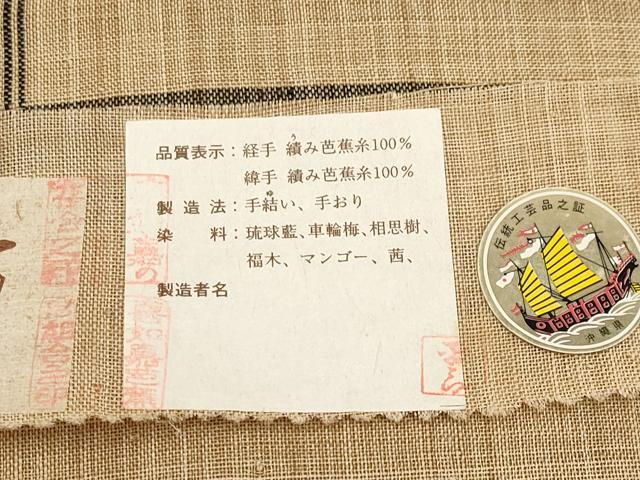 品質表示：経手 績み芭蕉糸100％
緯手 績み芭蕉糸100％
製造法：手結い、手おり
染料：琉球藍、車輪梅、相思樹、
福木、マンゴー、茜、
製造者名
伝統工芸品之証
沖縄県